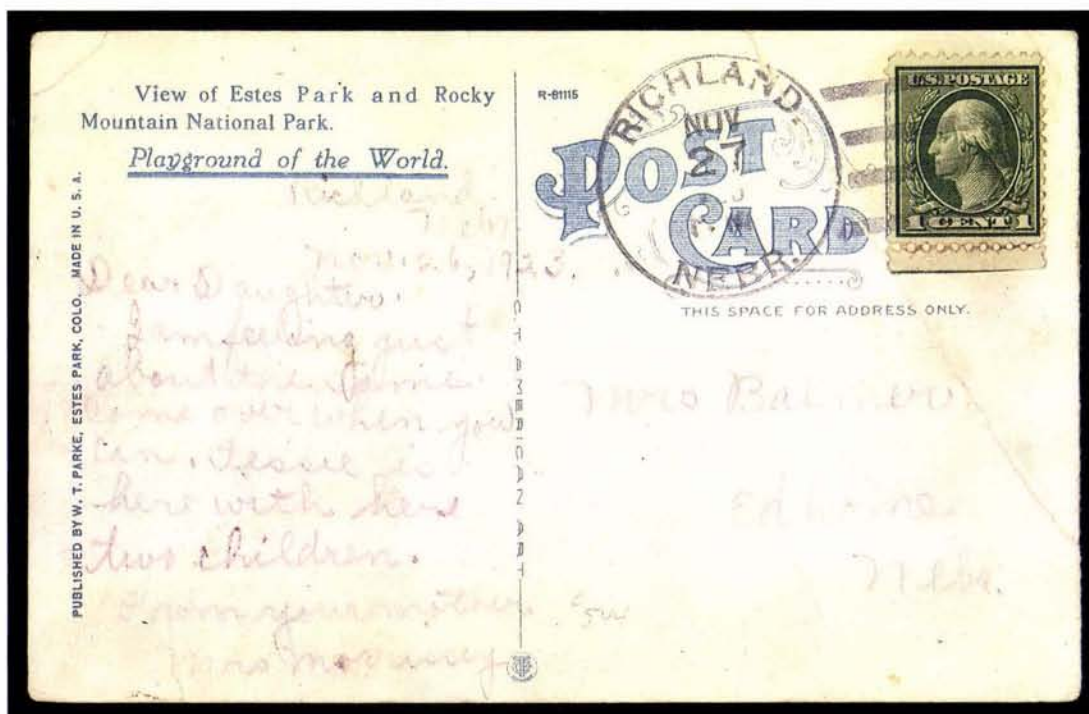 View of Estes Park and Rocky
Mountain National Park.
Playground of the World.
PUBLISHED BY W. T. PARKE, ESTES PARK, COLO. MADE IN U. S. A.
Richland
Nebr
Nov. 26, 1923.
Dear Daughter.
I am feeling just
about the same
Come over when you
can. Jessie is
here with here
two children.
From your mother
Mrs
C. T. AMERICAN ART
R-81115
POST
CARD
RICHLAND.
NOV
27
NEBR.
U.S. POSTAGE
1 CENT 1
THIS SPACE FOR ADDRESS ONLY.
Mrs
Nebr.